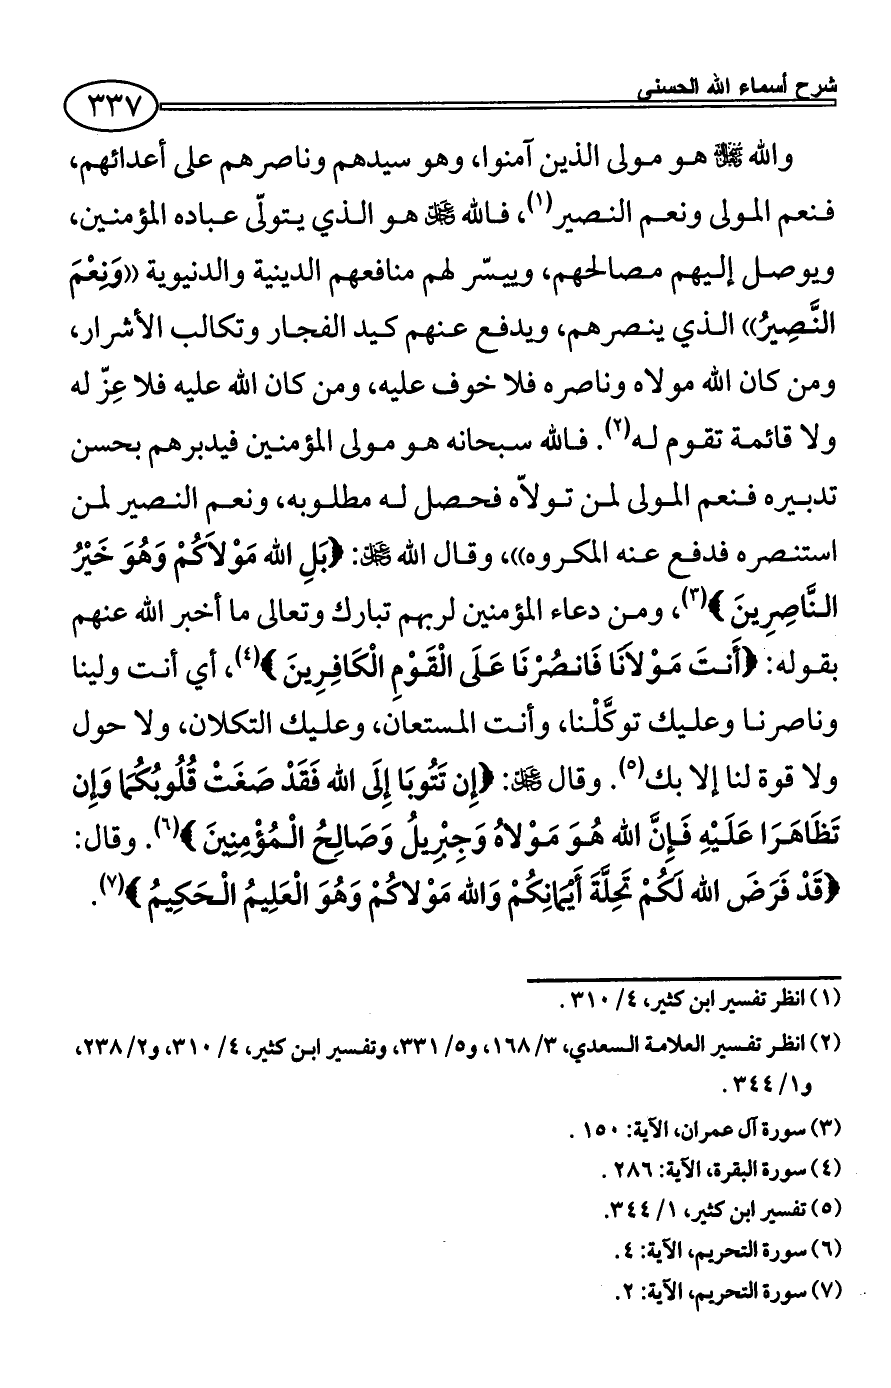 شرح أسماء الله الحسنى
٣٣٧
والله ﷻ هو مولى الذين آمنوا، وهو سيدهم وناصرهم على أعدائهم،
فنعم المولى ونعم النصير(١)، فالله ﷻ هو الذي يتولّى عباده المؤمنين،
ويوصل إليهم مصالحهم، وييسّر لهم منافعهم الدينية والدنيوية ((وَنِعْمَ
النَّصِيرُ)) الذي ينصرهم، ويدفع عنهم كيد الفجار وتكالب الأشرار،
ومن كان الله مولاه وناصره فلا خوف عليه، ومن كان الله عليه فلا عِزّ له
ولا قائمة تقوم له(٢). فالله سبحانه هو مولى المؤمنين فيدبرهم بحسن
تدبيره فنعم المولى لمن تولاّه فحصل له مطلوبه، ونعم النصير لمن
استنصره فدفع عنه المكروه))، وقال الله ﷻ: ﴿بَلِ الله مَوْلاَكُمْ وَهُوَ خَيْرُ
النَّاصِرِينَ﴾(٣)، ومن دعاء المؤمنين لربهم تبارك وتعالى ما أخبر الله عنهم
بقوله: ﴿أَنتَ مَوْلاَنَا فَانصُرْنَا عَلَى الْقَوْمِ الْكَافِرِينَ﴾(٤)، أي أنت ولينا
وناصرنا وعليك توكَّلْنا، وأنت المستعان، وعليك التكلان، ولا حول
ولا قوة لنا إلا بك(٥). وقال ﷻ: ﴿إِن تَتُوبَا إِلَى الله فَقَدْ صَغَتْ قُلُوبُكُمَا وَإِن
تَظَاهَرَا عَلَيْهِ فَإِنَّ الله هُوَ مَوْلاَهُ وَجِبْرِيلُ وَصَالِحُ الْمُؤْمِنِينَ﴾(٦). وقال:
﴿قَدْ فَرَضَ الله لَكُمْ تَحِلَّةَ أَيْمَانِكُمْ وَالله مَوْلاَكُمْ وَهُوَ الْعَلِيمُ الْحَكِيمُ﴾(٧).
(١) انظر تفسير ابن كثير، ٤/ ٣١٠ .
(٢) انظر تفسير العلامة السعدي، ٣/ ١٦٨، و٥/ ٣٣١، وتفسير ابن كثير، ٤/ ٣١٠، و٢/ ٢٣٨،
و١/ ٣٤٤ .
(٣) سورة آل عمران، الآية: ١٥٠ .
(٤) سورة البقرة، الآية: ٢٨٦ .
(٥) تفسير ابن كثير، ١/ ٣٤٤.
(٦) سورة التحريم، الآية: ٤.
(٧) سورة التحريم، الآية: ٢.